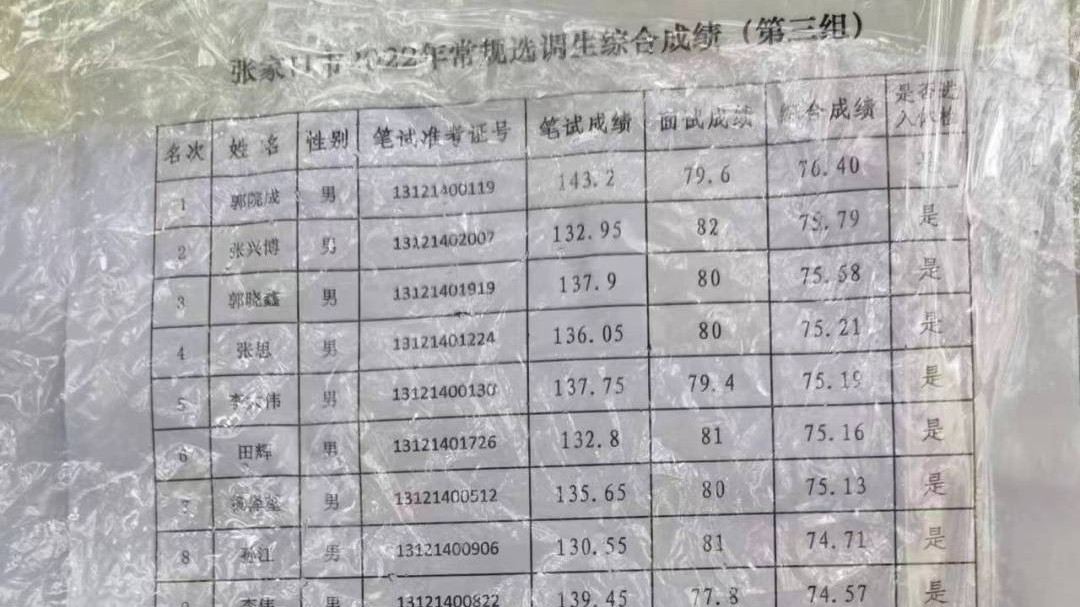 张家口市2022年常规选调生综合成绩（第三组）
名次 姓名 性别 笔试准考证号 笔试成绩 面试成绩 综合成绩 是否进入体检
1 郭院成 男 13121400119 143.2 79.6 76.40 是
2 张兴博 男 13121402007 132.95 82 75.79 是
3 郭晓鑫 男 13121401919 137.9 80 75.58 是
4 张思 男 13121401224 136.05 80 75.21 是
5 李 伟 男 13121400130 137.75 79.4 75.19 是
6 田辉 男 13121401726 132.8 81 75.16 是
7 男 13121400512 135.65 80 75.13 是
8 孙江 男 13121400906 130.55 81 74.71 是
9 李伟 男 13121400822 139.45 77.8 74.57 是